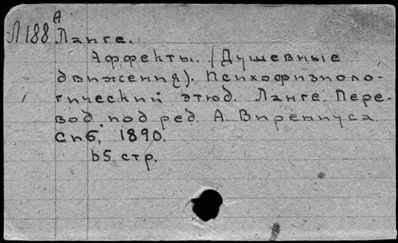 А
Л188 Ланге.
Аффекты. (Душевные
движения). Психофизиоло-
гический этюд. Ланге. Пере-
вод под ред. А. Вирениуса.
Спб, 1890.
65 стр.